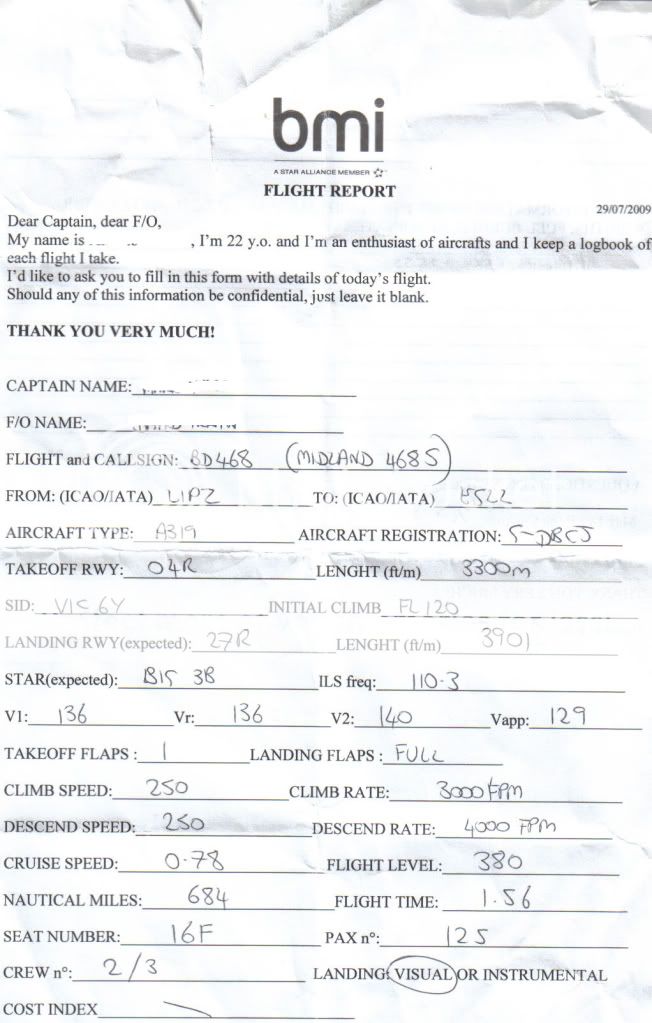 bmi
A STAR ALLIANCE MEMBER
FLIGHT REPORT
29/07/2009
Dear Captain, dear F/O,
My name is , I'm 22 y.o. and I'm an enthusiast of aircrafts and I keep a logbook of
each flight I take.
I'd like to ask you to fill in this form with details of today's flight.
Should any of this information be confidential, just leave it blank.
THANK YOU VERY MUCH!
CAPTAIN NAME:
F/O NAME:
FLIGHT and CALLSIGN: BD468 (MIDLAND 468S)
FROM: (ICAO/IATA) LIPZ TO: (ICAO/IATA) EGLL
AIRCRAFT TYPE: A319 AIRCRAFT REGISTRATION: G-DBCJ
TAKEOFF RWY: 04R LENGHT (ft/m) 3300m
SID: VIC 6Y INITIAL CLIMB FL 120
LANDING RWY(expected): 27R LENGHT (ft/m) 3901
STAR(expected): BIG 3B ILS freq: 110.3
V1: 136 Vr: 136 V2: 140 Vapp: 129
TAKEOFF FLAPS : 1 LANDING FLAPS : FULL
CLIMB SPEED: 250 CLIMB RATE: 3000 FPM
DESCEND SPEED: 250 DESCEND RATE: 4000 FPM
CRUISE SPEED: 0.78 FLIGHT LEVEL: 380
NAUTICAL MILES: 684 FLIGHT TIME: 1.56
SEAT NUMBER: 16F PAX n°: 125
CREW n°: 2/3 LANDING: VISUAL OR INSTRUMENTAL
COST INDEX